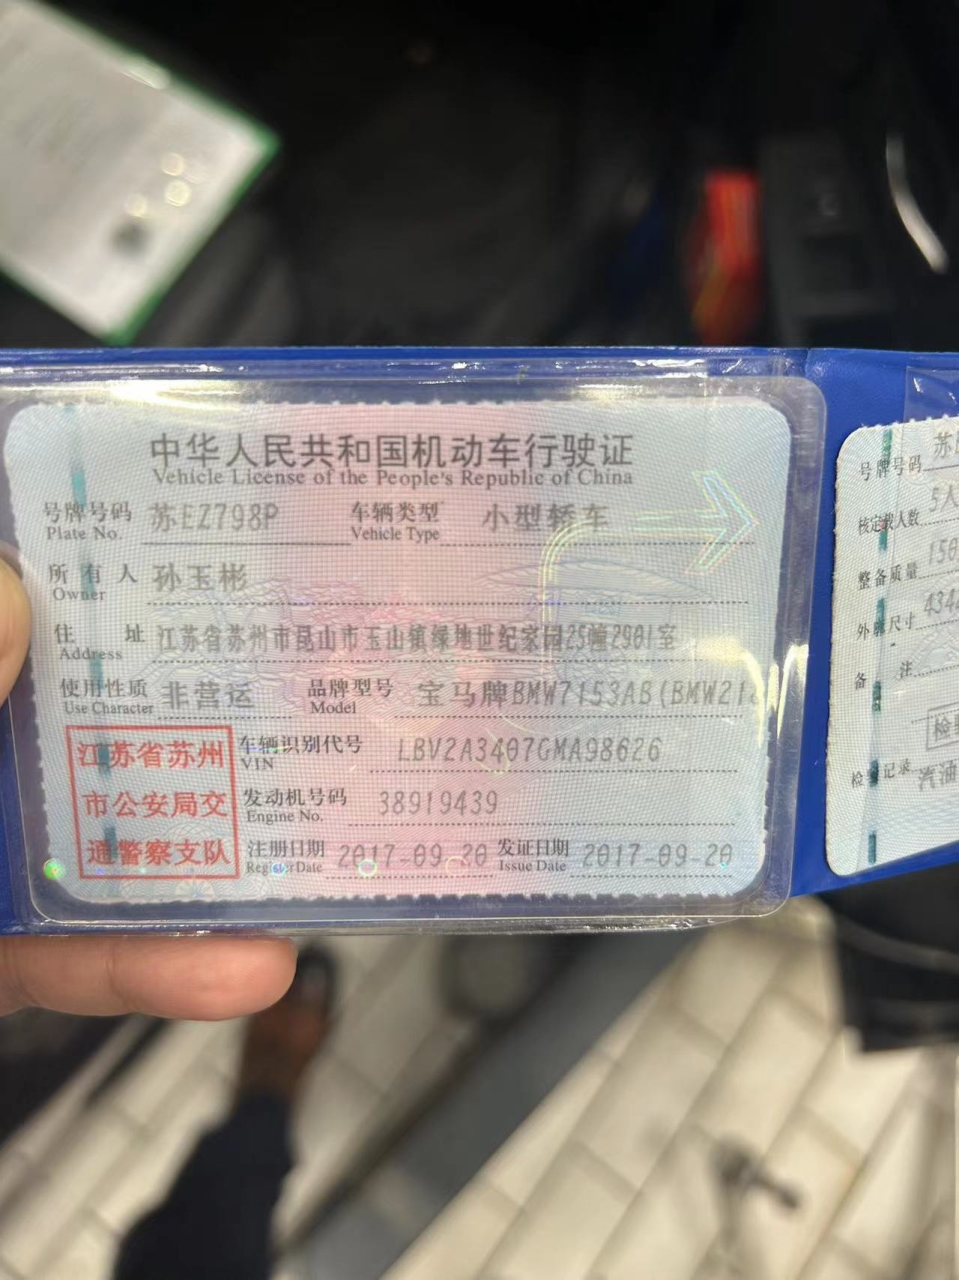 中华人民共和国机动车行驶证
Vehicle License of the People's Republic of China
号牌号码 苏EZ798P 车辆类型 小型轿车
Plate No. Vehicle Type
所有人 孙玉彬
Owner
住址 江苏省苏州市昆山市玉山镇绿地世纪家园25幢2901室
Address
使用性质 非营运 品牌型号 宝马牌BMW7153AB(BMW218
Use Character Model
江苏省苏州
市公安局交
通警察支队
车辆识别代号 LBV2A3407GMA98626
VIN
发动机号码 38919439
Engine No.
注册日期 2017-09-20 发证日期 2017-09-20
Register Date Issue Date
号牌号码 苏E
核定载人数 5人
整备质量 150
外廓尺寸 434
备注
检验记录 汽油